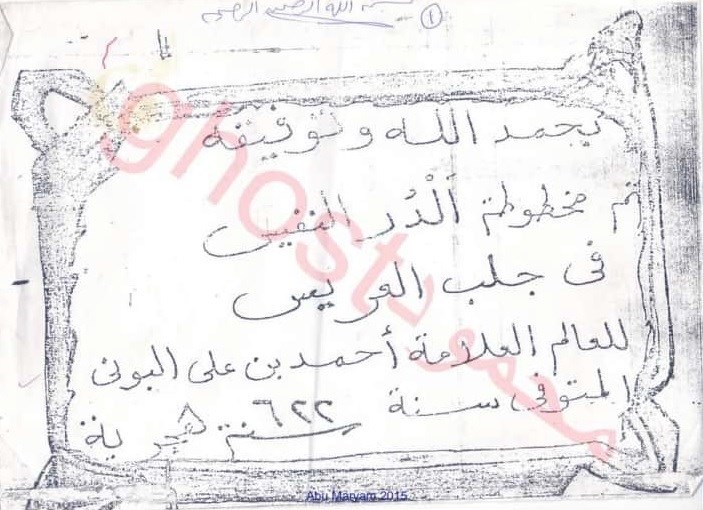 بسم الله الرحمن الرحيم ①
بحمد الله وتوفيقه
تم مخطوطة الدُر النفيس
فى جلب العريس
للعالم العلامة أحمد بن على البونى
المتوفى سنة ٦٢٢ سنة هجرية
ghost محمود
Abu Maryam 2015